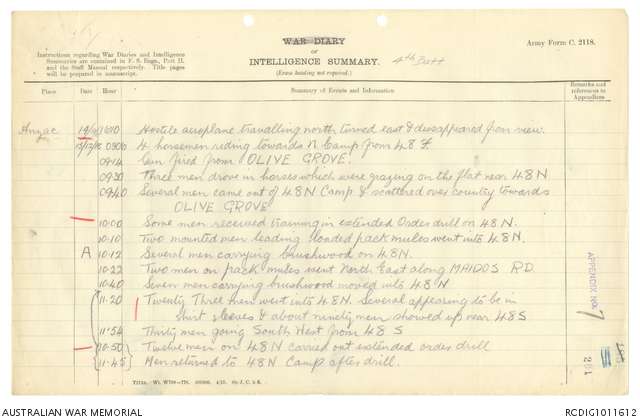 WAR DIARY
or
INTELLIGENCE SUMMARY.
(Erase heading not required.)
4th Batt
Army Form C. 2118.
Instructions regarding War Diaries and Intelligence
Summaries are contained in F. S. Regs., Part II.
and the Staff Manual respectively. Title pages
will be prepared in manuscript.
Place Date Hour Summary of Events and Information Remarks and references to Appendices
Anzac 1610 Hostile aeroplane travelling north turned east & disappeared from view.
4 horsemen riding towards N Camp from 48 F.
0914 Gun fired from OLIVE GROVE.
0920 Three men drove in horses which were grazing on the flat near 48N
0940 Several men came out of 48N Camp & scattered over country towards
OLIVE GROVE
10.00 Some men received training in extended order drill on 48N.
10.10 Two mounted men leading loaded pack mules went into 48N.
A 10.12 Several men carrying brushwood on 48N.
10.22 Two men on pack mules went North East along MAIDOS RD.
10.40 Seven men carrying brushwood moved into 48N
11.20 Twenty Three men went into 48N. Several appearing to be in
shirt sleeves & about ninety men showed up near 48S
11.54 Thirty men going South West from 48 S
10.50 Twelve men on 48N carried out extended order drill
11.45 Men returned to 48N Camp after drill.
APPENDIX No. 7
261
AUSTRALIAN WAR MEMORIAL
RCDIG1011612